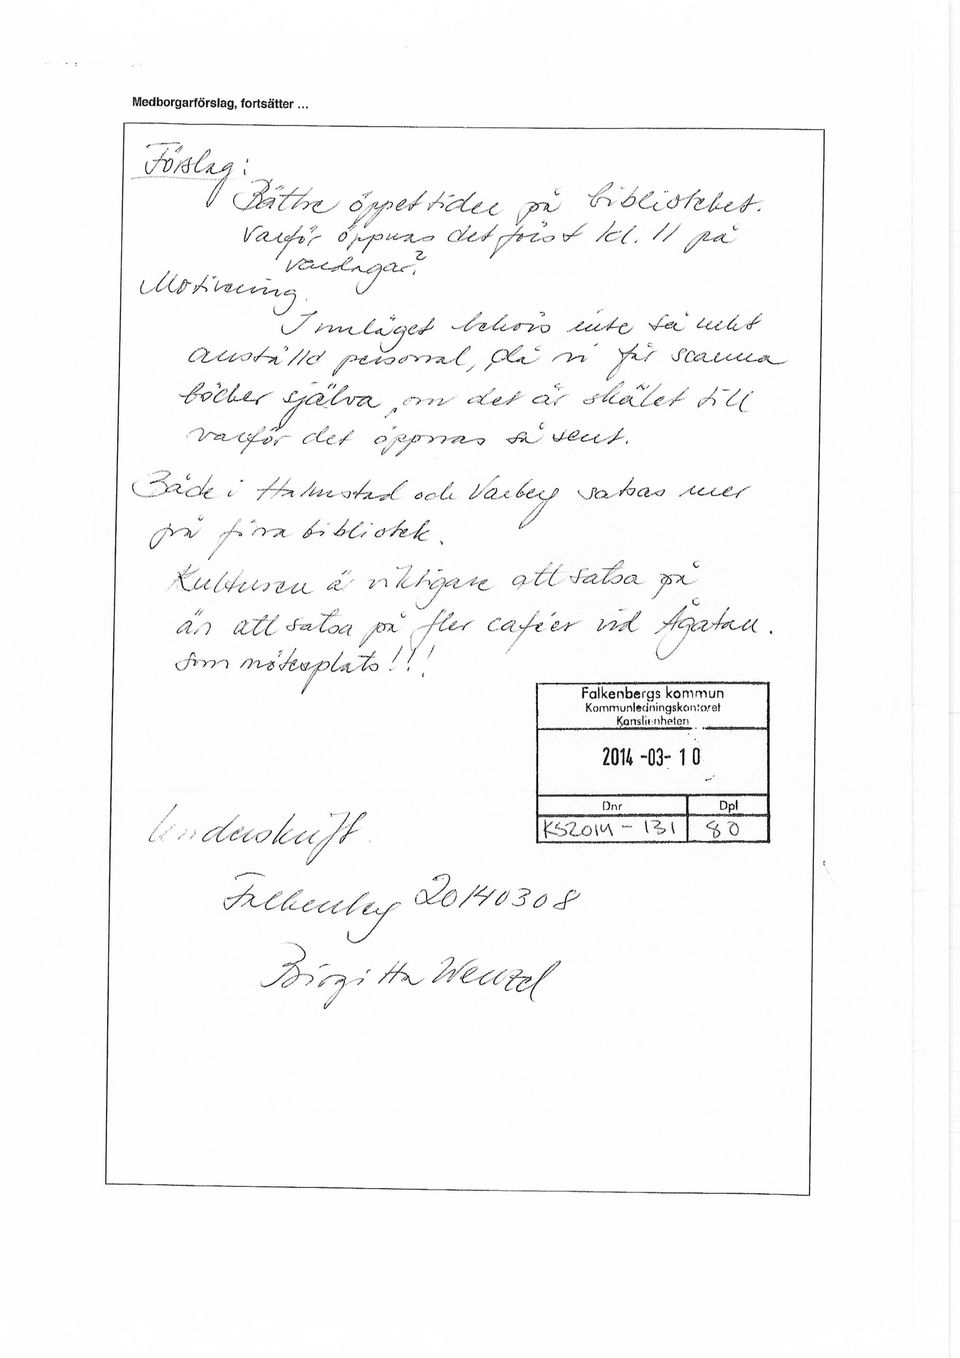 Medborgarförslag, fortsätter ...
Förslag:
Bättre öppettider på biblioteket.
Varför öppnas det först kl. 11 på
vardagar?
Motivering.
I nuläget behövs inte så mkt
anställd personal, då vi får scanna
böcker själva, om det är skälet till
varför det öppnas så sent.
Både i Halmstad och Varberg satsas mer
på fina bibliotek.
Kulturen är viktigare att satsa på
än att satsa på fler caféer vid Ågatan.
som mötesplats!!!
Falkenbergs kommun
Kommunledningskontoret
Kanslienheten
2014 -03- 10
Dnr Dpl
KS2014 - 131 80
Underskrift.
Falkenberg 20140308
Birgitta Wenzel